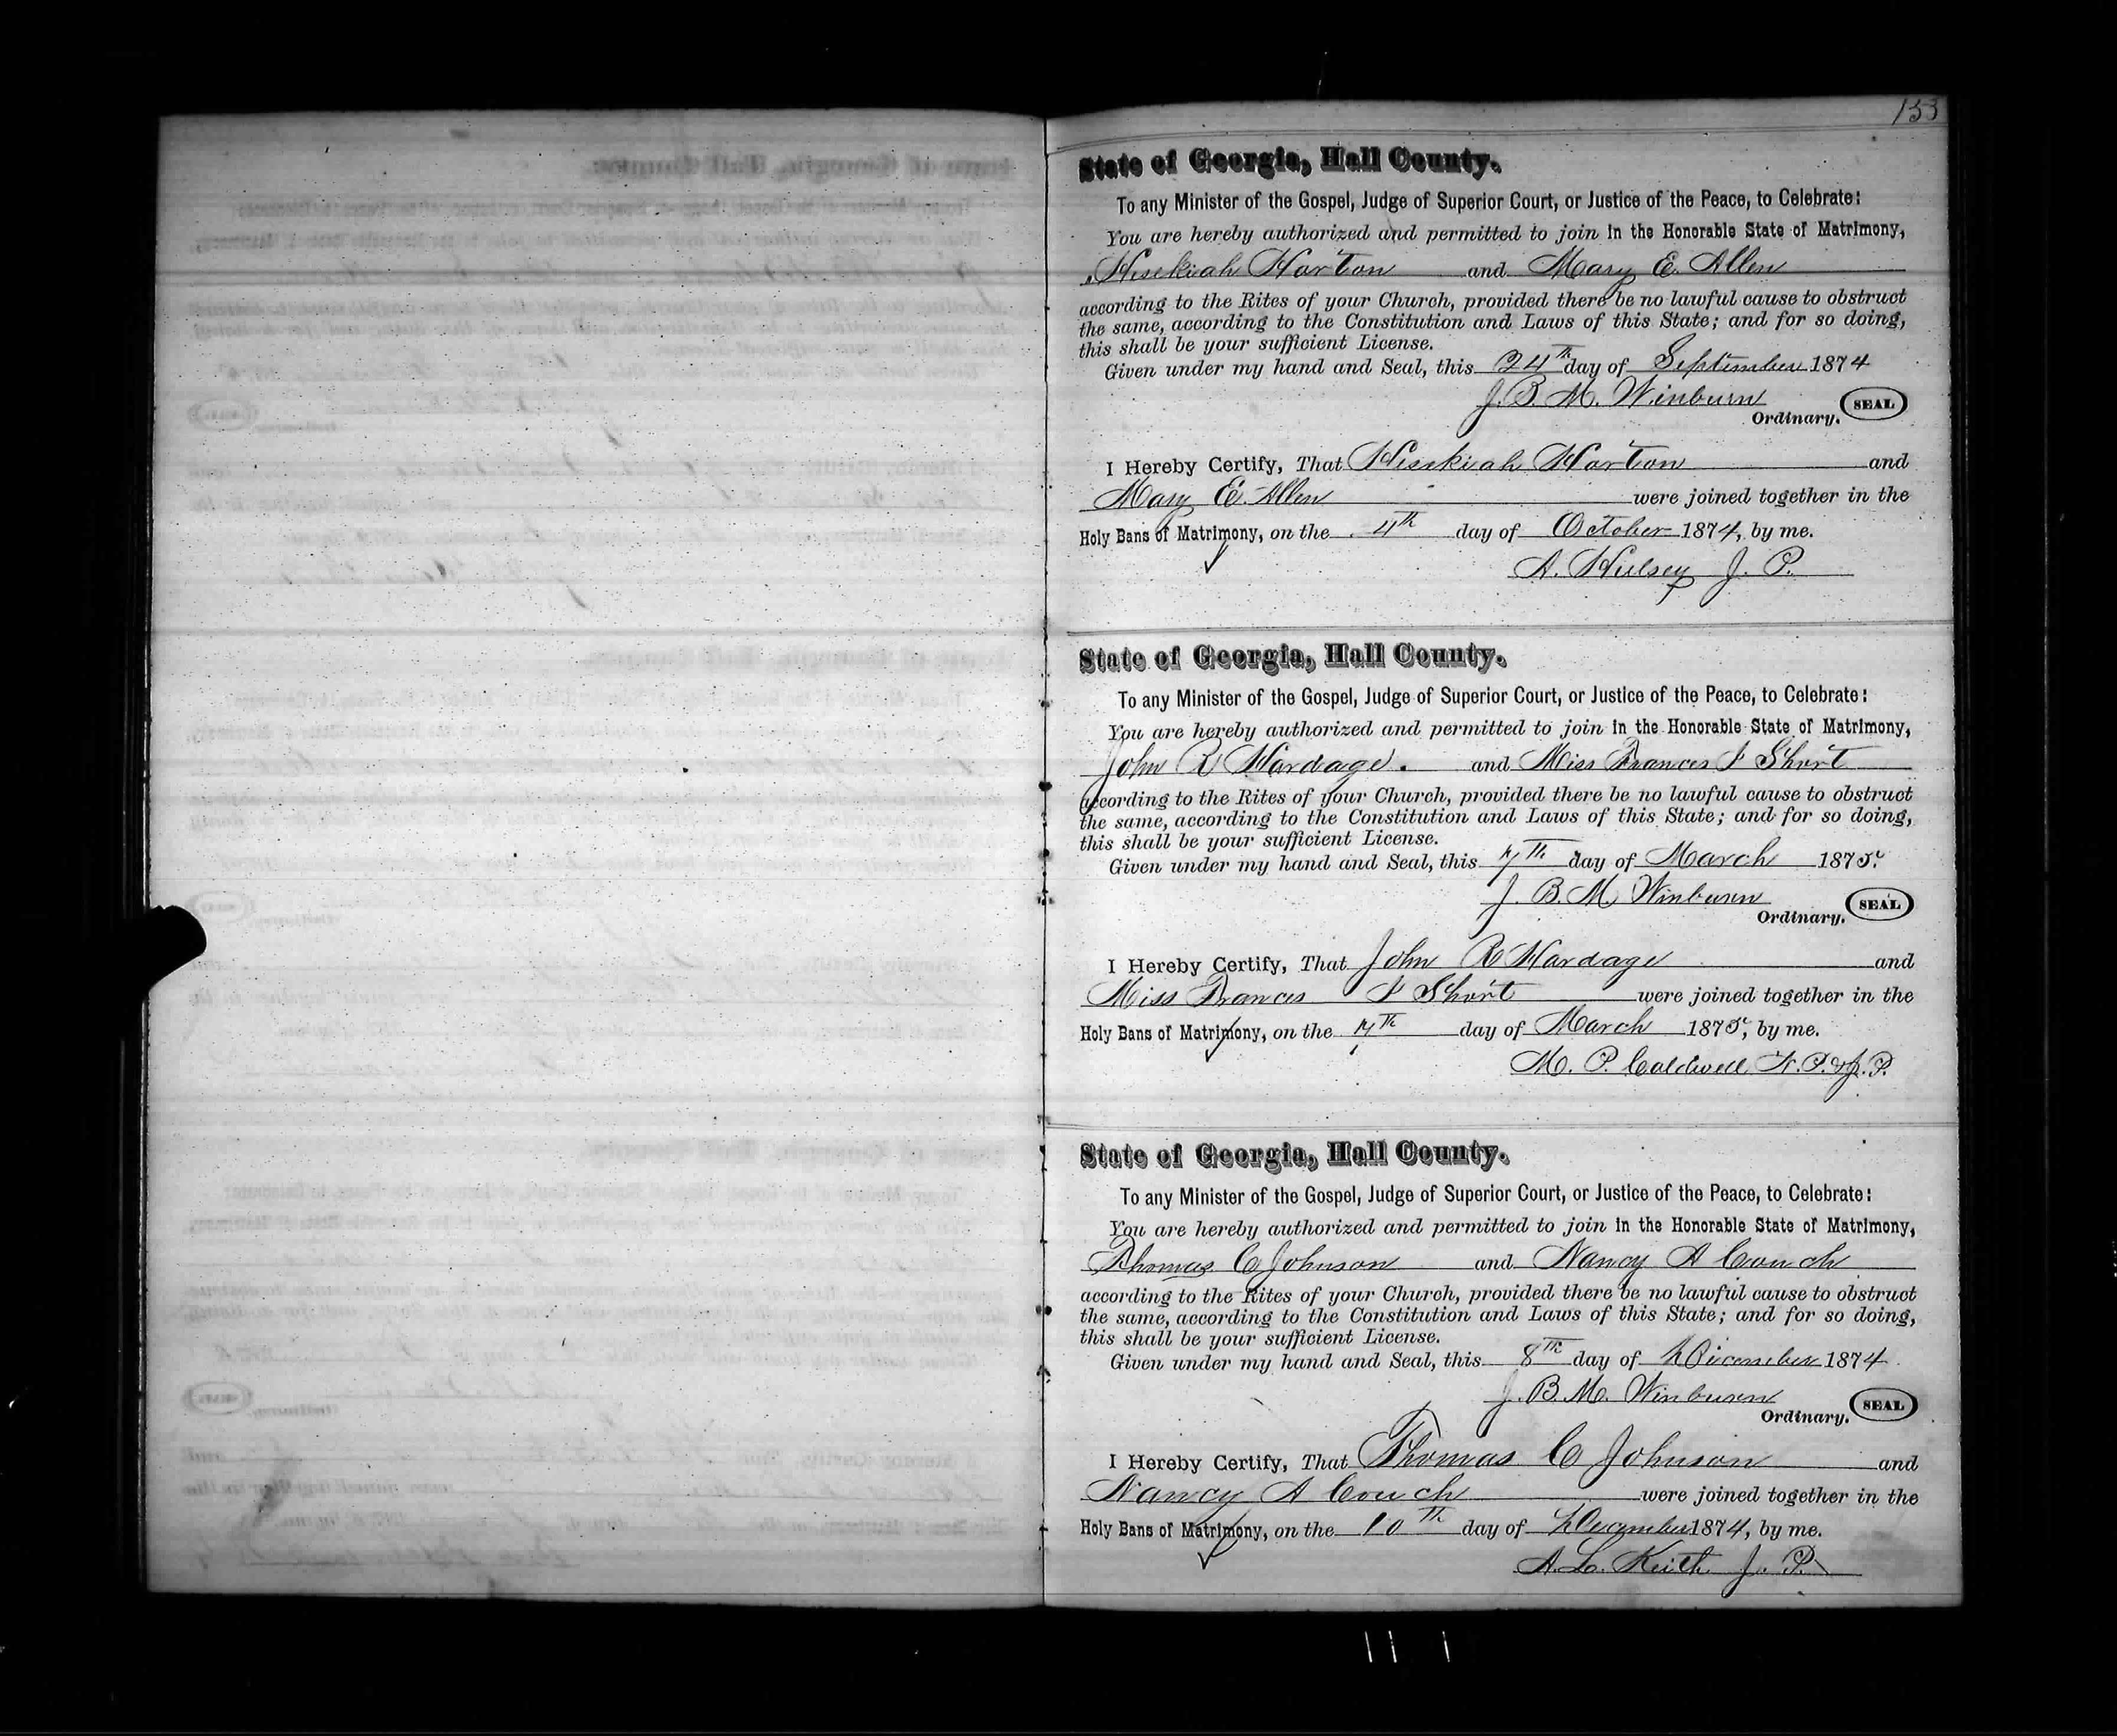 153
State of Georgia, Hall County.
To any Minister of the Gospel, Judge of Superior Court, or Justice of the Peace, to Celebrate:
You are hereby authorized and permitted to join in the Honorable State of Matrimony,
Hisekiah Horton and Mary E. Allen
according to the Rites of your Church, provided there be no lawful cause to obstruct
the same, according to the Constitution and Laws of this State; and for so doing,
this shall be your sufficient License.
Given under my hand and Seal, this 24th day of September 1874
J. B. M. Winburn
Ordinary. SEAL
I Hereby Certify, That Hisekiah Horton and
Mary E. Allen were joined together in the
Holy Bans of Matrimony, on the 4th day of October 1874, by me.
A. Hulsey J. P.
State of Georgia, Hall County.
To any Minister of the Gospel, Judge of Superior Court, or Justice of the Peace, to Celebrate:
You are hereby authorized and permitted to join in the Honorable State of Matrimony,
John R Hardage. and Miss Frances J Short
according to the Rites of your Church, provided there be no lawful cause to obstruct
the same, according to the Constitution and Laws of this State; and for so doing,
this shall be your sufficient License.
Given under my hand and Seal, this 7th day of March 1875.
J. B. M. Winburn
Ordinary. SEAL
I Hereby Certify, That John R Hardage and
Miss Frances J Short were joined together in the
Holy Bans of Matrimony, on the 7th day of March 1875, by me.
M. P. Caldwell N. P. & J. P.
State of Georgia, Hall County.
To any Minister of the Gospel, Judge of Superior Court, or Justice of the Peace, to Celebrate:
You are hereby authorized and permitted to join in the Honorable State of Matrimony,
Thomas C Johnson and Nancy A Couch
according to the Rites of your Church, provided there be no lawful cause to obstruct
the same, according to the Constitution and Laws of this State; and for so doing,
this shall be your sufficient License.
Given under my hand and Seal, this 8th day of December 1874
J. B. M. Winburn
Ordinary. SEAL
I Hereby Certify, That Thomas C Johnson and
Nancy A Couch were joined together in the
Holy Bans of Matrimony, on the 10th day of December 1874, by me.
A. L. Keith J. P.